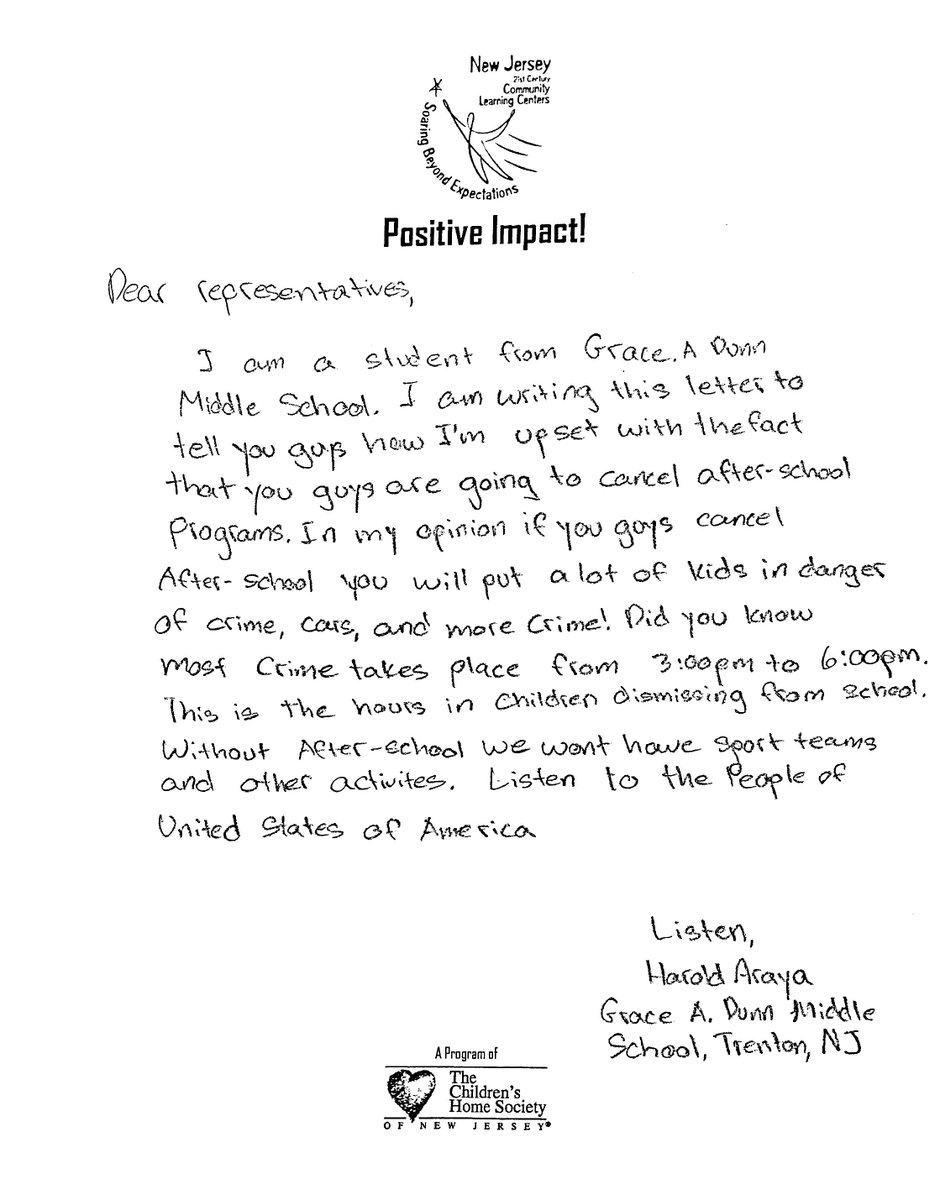 New Jersey
21st Century
Community
Learning Centers
Soaring Beyond Expectations
Positive Impact!
Dear representatives,
I am a student from Grace. A Dunn
Middle School. I am writing this letter to
tell you guys how I'm upset with the fact
that you guys are going to cancel after-school
Programs. In my opinion if you guys cancel
After-school you will put a lot of kids in danger
of crime, cars, and more Crime! Did you know
most Crime takes place from 3:00pm to 6:00pm.
This is the hours in Children dismissing from school.
Without After-school we wont have sport teams
and other activites. Listen to the People of
United States of America
Listen,
Harold Araya
Grace A. Dunn Middle
School, Trenton, NJ
A Program of
The
Children's
Home Society
OF NEW JERSEY®